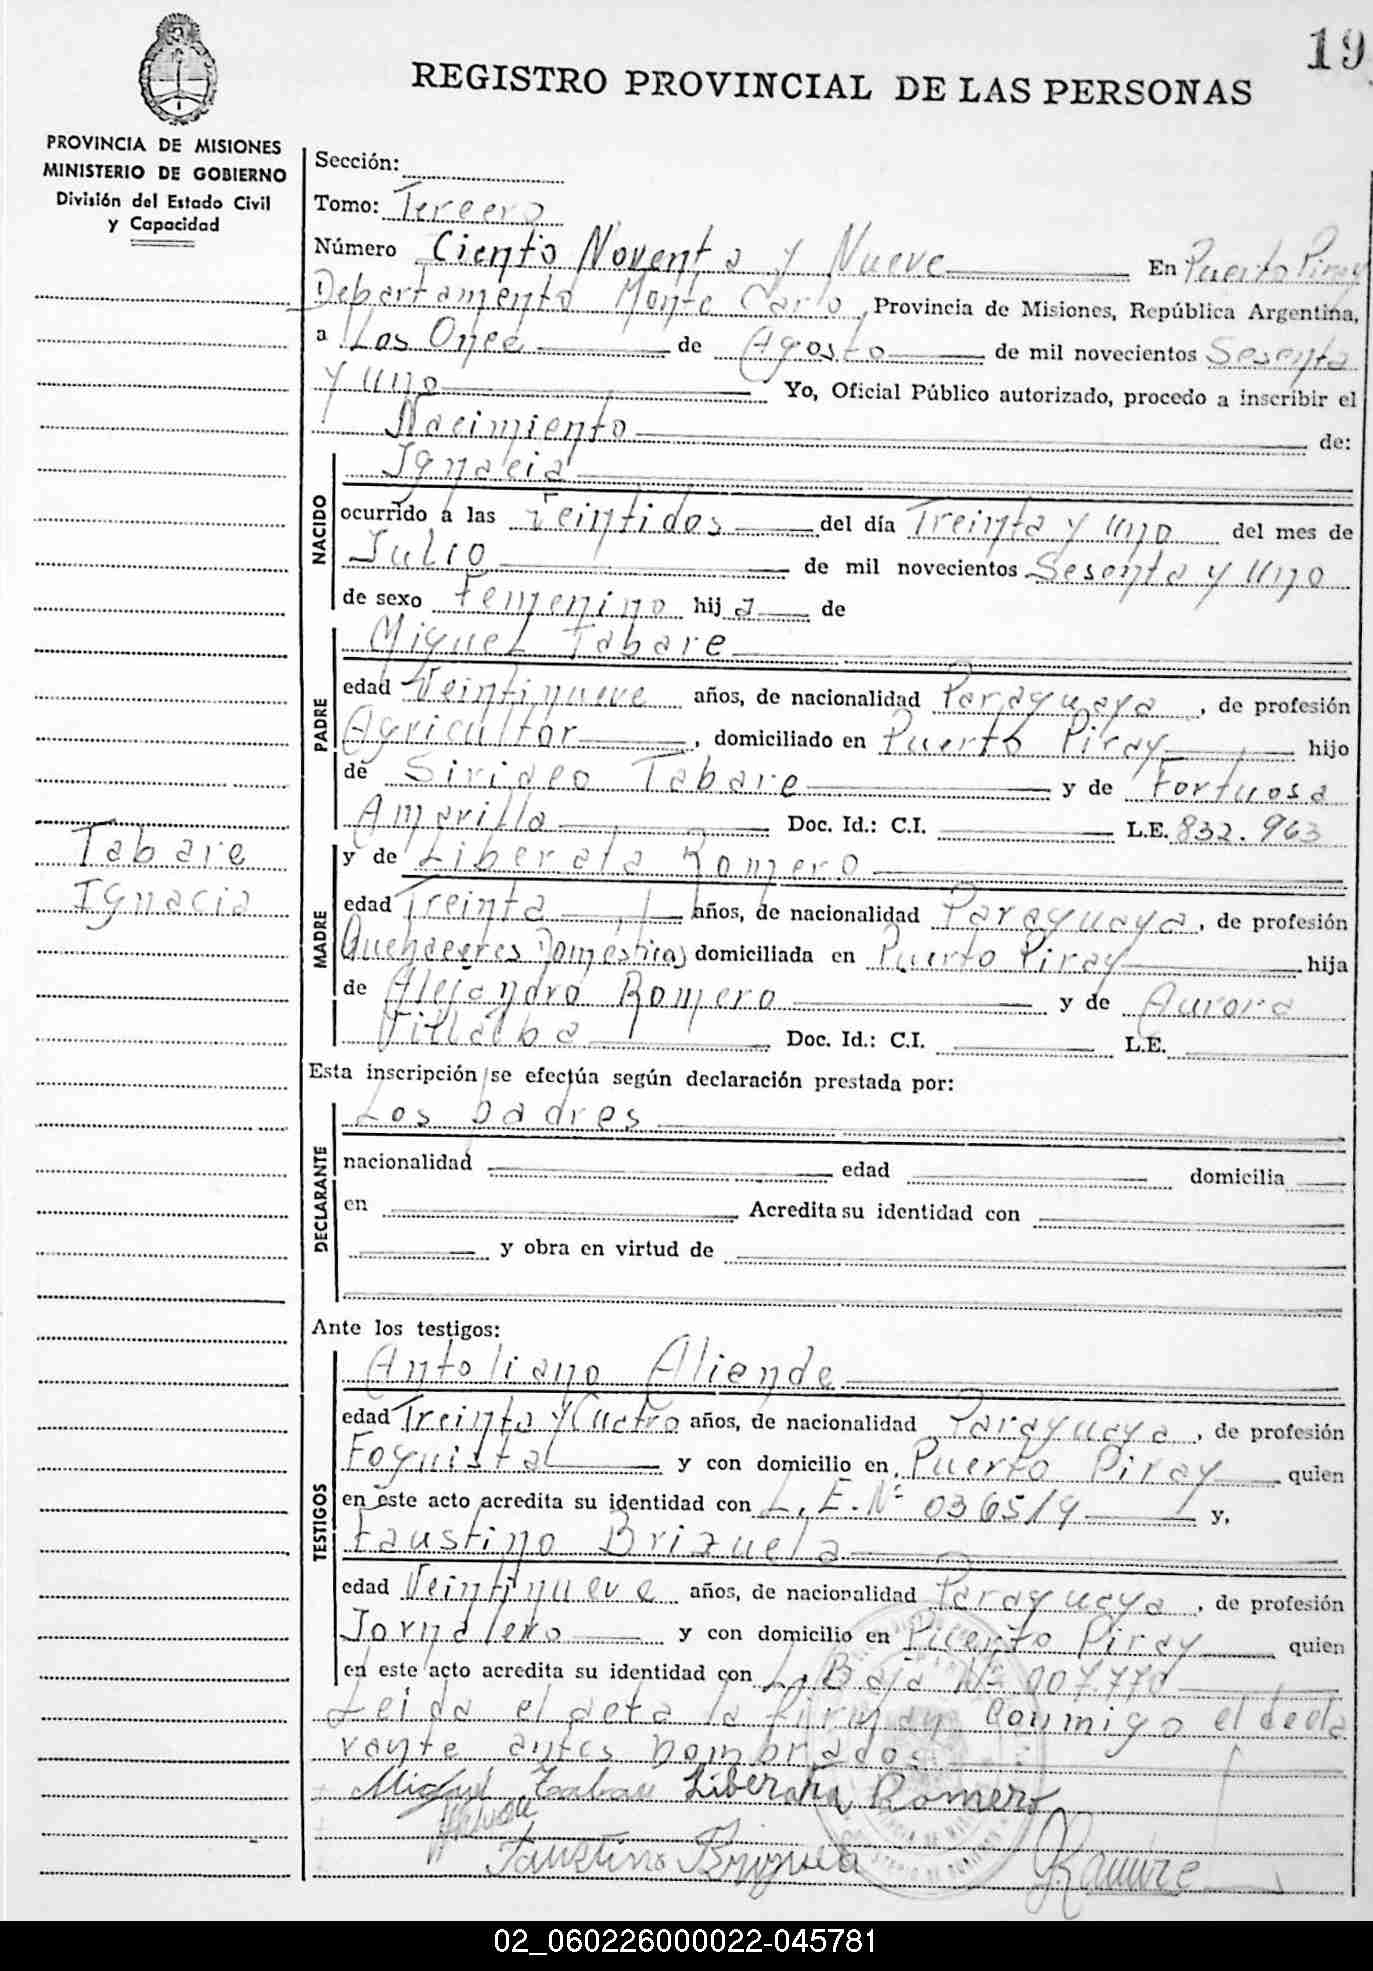 19
REGISTRO PROVINCIAL DE LAS PERSONAS
PROVINCIA DE MISIONES
MINISTERIO DE GOBIERNO
División del Estado Civil
y Capacidad
Sección:
Tomo: Tercero
Número Ciento Noventa y Nueve En Puerto Piray
Departamento Monte Carlo, Provincia de Misiones, República Argentina,
a Los Once de Agosto de mil novecientos Sesenta
y Uno Yo, Oficial Público autorizado, procedo a inscribir el
Nacimiento de:
NACIDO
Ignacia
ocurrido a las Veintidos del día Treinta y Uno del mes de
Julio de mil novecientos Sesenta y Uno
de sexo Femenino hija de
PADRE
Miguel Tabare
edad Veintinueve años, de nacionalidad Paraguaya, de profesión
Agricultor, domiciliado en Puerto Piray hijo
de Sirideo Tabare y de Fortuosa
Amarilla Doc. Id.: C.I. L.E. 832.963
Tabare
Ignacia
MADRE
y de Liberata Romero
edad Treinta años, de nacionalidad Paraguaya, de profesión
Quehaceres Domésticos domiciliada en Puerto Piray hija
de Alejandro Romero y de Aurora
Villalba Doc. Id.: C.I. L.E.
Esta inscripción se efectúa según declaración prestada por:
DECLARANTE
Los padres
nacionalidad edad domicilia
en Acredita su identidad con
y obra en virtud de
Ante los testigos:
TESTIGOS
Antoliano Aliende
edad Treinta y Cuatro años, de nacionalidad Paraguaya, de profesión
Foguista y con domicilio en Puerto Piray quien
en este acto acredita su identidad con L.E. Nº 036519 y,
Faustino Brizuela
edad Veintinueve años, de nacionalidad Paraguaya, de profesión
Jornalero y con domicilio en Puerto Piray quien
en este acto acredita su identidad con L. Baja Nº 007.770
Leida el acta la firman conmigo el decla
rante antes nombrados
Miguel Tabare Liberata Romero
Faustino Brizuela Ramirez
02_060226000022-045781